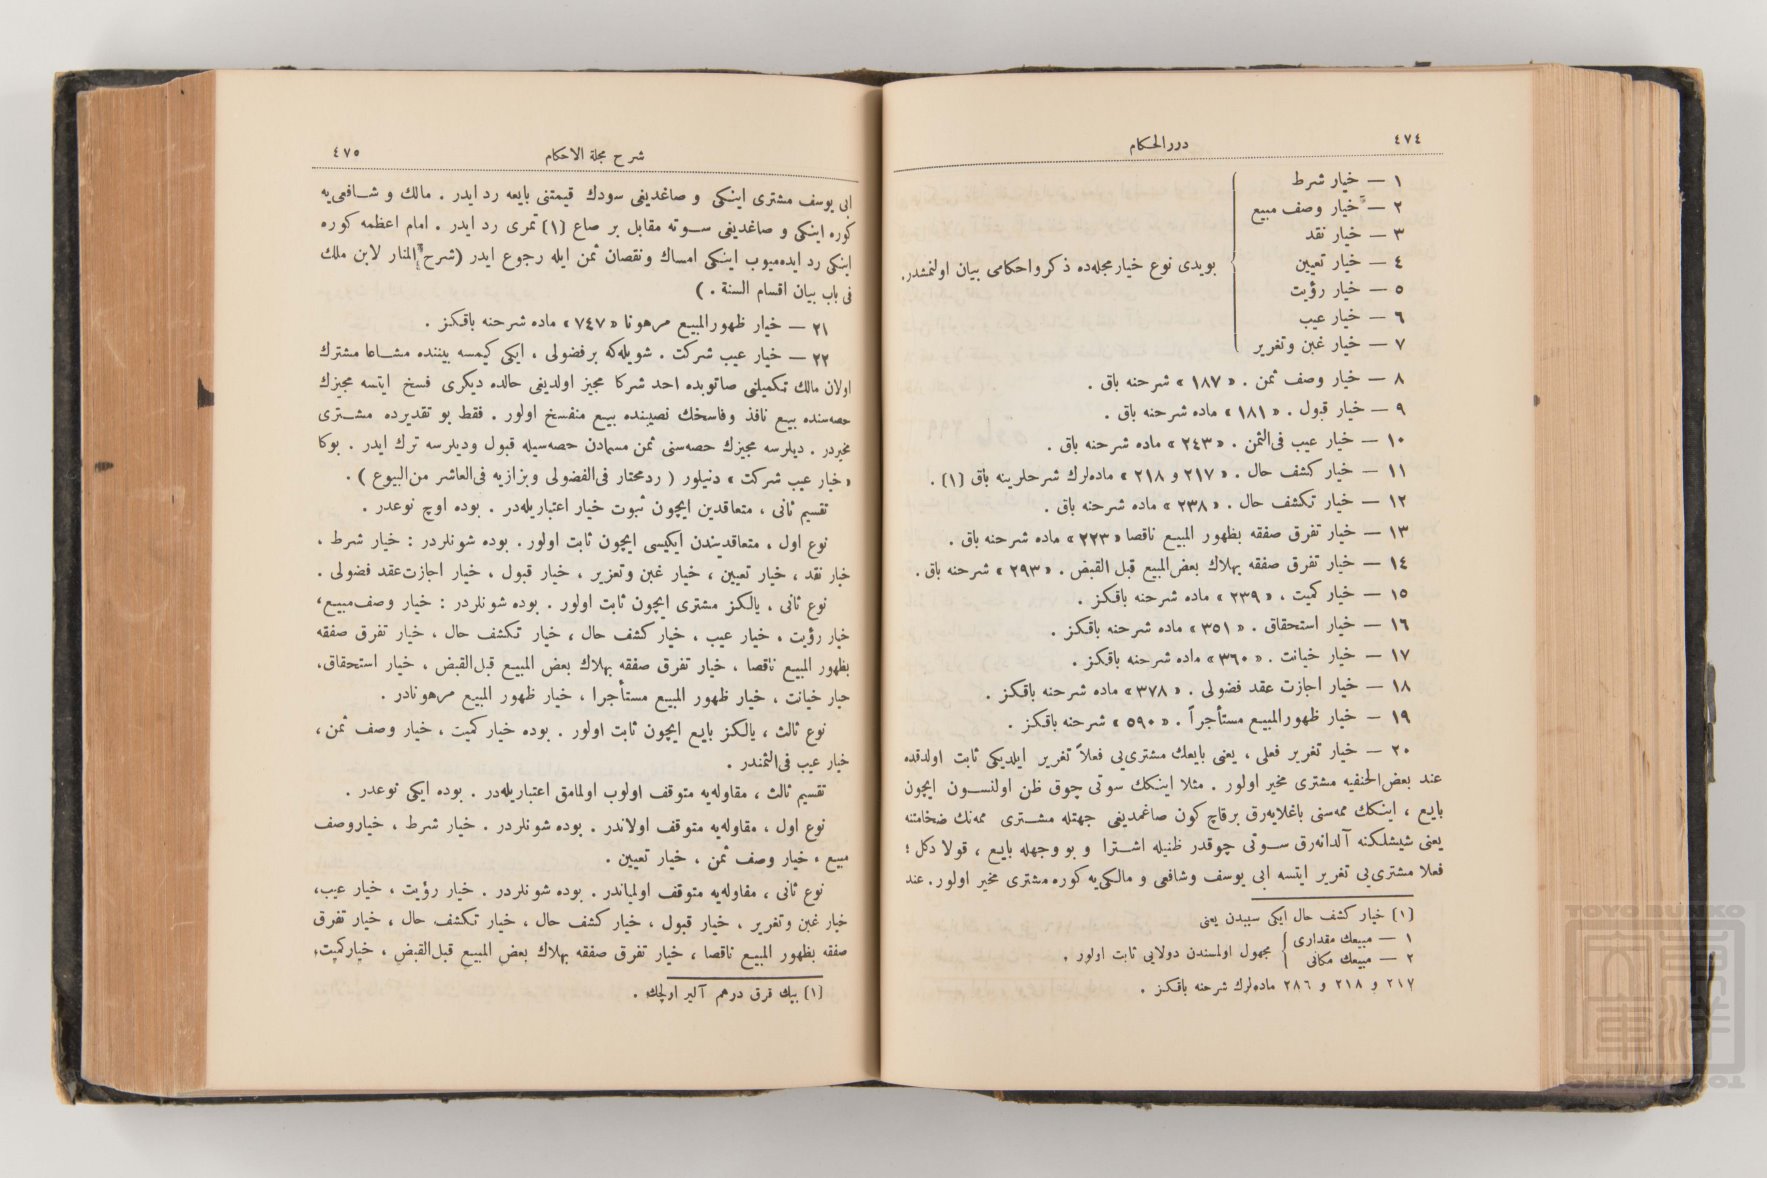 ٤٧٤
دررالحكام
١ — خيار شرط
٢ — خيار وصف مبيع
٣ — خيار نقد
٤ — خيار تعيين
٥ — خيار رؤيت
٦ — خيار عيب
٧ — خيار غبن وتغرير
بويدى نوع خيار مجلهده ذكر واحكامى بيان اولنمشدر.
٨ — خيار وصف ثمن . «١٨٧» شرحنه باق .
٩ — خيار قبول . «١٨١» ماده شرحنه باق .
١٠ — خيار عيب فى الثمن . «٢٤٣» ماده شرحنه باق .
١١ — خيار كشف حال . «٢١٧ و ٢١٨» مادهلرك شرحلرينه باق (١) .
١٢ — خيار تكشف حال . «٢٣٨» ماده شرحنه باق .
١٣ — خيار تفرق صفقه بظهور المبيع ناقصا «٢٢٣» ماده شرحنه باق .
١٤ — خيار تفرق صفقه بهلاك بعض المبيع قبل القبض . «٢٩٣» شرحنه باق .
١٥ — خيار كميت . «٢٣٩» ماده شرحنه باقكز .
١٦ — خيار استحقاق . «٣٥١» ماده شرحنه باقكز .
١٧ — خيار خيانت . «٣٦٠» ماده شرحنه باقكز .
١٨ — خيار اجازت عقد فضولى . «٣٧٨» ماده شرحنه باقكز .
١٩ — خيار ظهور المبيع مستأجراً . «٥٩٠» شرحنه باقكز .
٢٠ — خيار تغرير فعلى ، يعنى بايعك مشترىيى فعلاً تغرير ايلديكى ثابت اولدقده
عند بعض الحنفيه مشترى مخير اولور . مثلا اينكك سوتى چوق ظن اولنسون ايچون
بايع ، اينكك ممهسنى باغلايهرق برقاچ كون صاغمديغى جهتله مشترى ممهنك ضخامتنه
يعنى شيشلكنه آلدانهرق سوتى چوقدر ظنيله اشترا و بو وجهله بايع ، قولا دكل ؛
فعلا مشترىيى تغرير ايتسه ابى يوسف وشافعى و مالكىيه كوره مشترى مخير اولور . عند
(١) خيار كشف حال ايكى سببدن يعنى
١ — مبيعك مقدارى
٢ — مبيعك مكانى
مجهول اولمسندن دولايى ثابت اولور .
٢١٧ و ٢١٨ و ٢٨٦ مادهلرك شرحنه باقكز .
شرح مجلة الاحكام
٤٧٥
ابى يوسف مشترى اينكى و صاغديغى سودك قيمتنى بايعه رد ايدر . مالك و شافعىيه
كوره اينكى و صاغديغى سوته مقابل بر صاع (١) تمرى رد ايدر . امام اعظمه كوره
اينكى رد ايدهميوب اينكى امساك ونقصان ثمن ايله رجوع ايدر (شرح المنار لابن ملك
فى باب بيان اقسام السنة . )
٢١ — خيار ظهور المبيع مرهونا «٧٤٧» ماده شرحنه باقكز .
٢٢ — خيار عيب شركت . شويلهكه برفضولى ، ايكى كيمسه بيننده مشاعا مشترك
اولان مالك تكميلنى صاتوبده احد شركا مجيز اولديغى حالده ديكرى فسخ ايتسه مجيزك
حصهسنده بيع نافذ وفاسخك نصيبنده بيع منفسخ اولور . فقط بو تقديرده مشترى
مخيردر . ديلرسه مجيزك حصهسنى ثمن مسمادن حصهسيله قبول وديلرسه ترك ايدر . بوكا
«خيار عيب شركت» دنيلور ( ردمحتار فى الفضولى وبزازيه فى العاشر من البيوع ) .
تقسيم ثانى ، متعاقدين ايچون ثبوت خيار اعتباريلهدر . بوده اوچ نوعدر .
نوع اول ، متعاقديندن ايكيسى ايچون ثابت اولور . بوده شونلردر : خيار شرط ،
خيار نقد ، خيار تعيين ، خيار غبن وتعزير ، خيار قبول ، خيار اجازت عقد فضولى .
نوع ثانى ، يالكز مشترى ايچون ثابت اولور . بوده شونلردر : خيار وصف مبيع ،
خيار رؤيت ، خيار عيب ، خيار كشف حال ، خيار تكشف حال ، خيار تفرق صفقه
بظهور المبيع ناقصا ، خيار تفرق صفقه بهلاك بعض المبيع قبل القبض ، خيار استحقاق،
خيار خيانت ، خيار ظهور المبيع مستأجرا ، خيار ظهور المبيع مرهونادر .
نوع ثالث ، يالكز بايع ايچون ثابت اولور . بوده خيار كميت ، خيار وصف ثمن ،
خيار عيب فى الثمندر .
تقسيم ثالث ، مقاولهيه متوقف اولوب اولمامق اعتباريلهدر . بوده ايكى نوعدر .
نوع اول ، مقاولهيه متوقف اولاندر . بوده شونلردر . خيار شرط ، خيار وصف
مبيع ، خيار وصف ثمن ، خيار تعيين .
نوع ثانى ، مقاولهيه متوقف اولمياندر . بوده شونلردر . خيار رؤيت ، خيار عيب،
خيار غبن وتغرير ، خيار قبول ، خيار كشف حال ، خيار تكشف حال ، خيار تفرق
صفقه بظهور المبيع ناقصا ، خيار تفرق صفقه بهلاك بعض المبيع قبل القبض ، خيار كميت،
(١) بيك قرق درهم آلير اولچك .
TOYO BUNKO